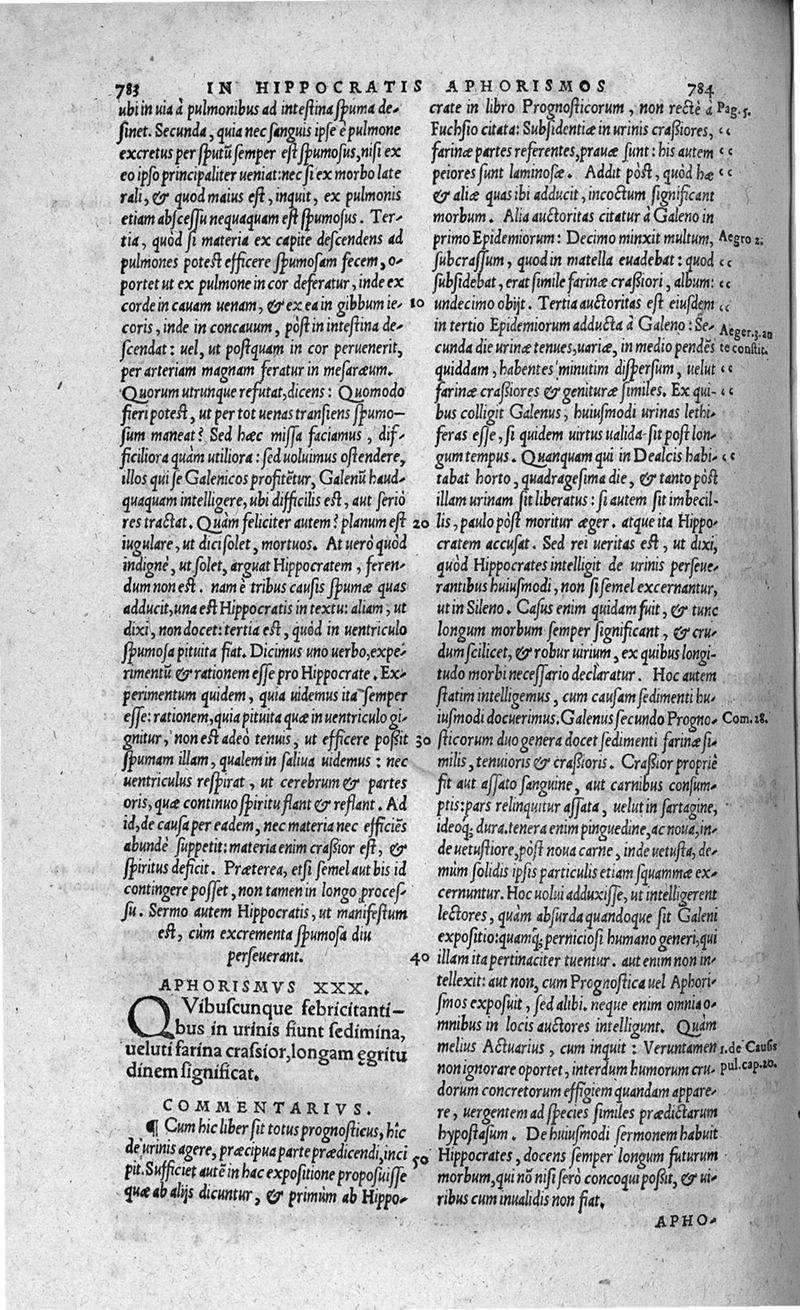 783 IN HIPPOCRATIS APHORISMOS 784
ubi in uia à pulmonibus ad intestina spuma de-
sinet. Secunda, quia nec sanguis ipse è pulmone
excretus per sputũ semper est spumosus, nisi ex
eo ipso principaliter ueniat: nec si ex morbo late
rali, & quod maius est, inquit, ex pulmonis
etiam abscessu nequaquam est spumosus. Ter-
tia, quòd si materia ex capite descendens ad
pulmones potest efficere spumosam fecem, o-
portet ut ex pulmone in cor deferatur, inde ex
corde in cauam uenam, & ex ea in gibbum ie-
coris, inde in concauum, pòst in intestina de-
scendat: uel, ut postquam in cor peruenerit,
per arteriam magnam feratur in mesaræum.
Quorum utrunque refutat, dicens: Quomodo
fieri potest, ut per tot uenas transiens spumo-
sum maneat? Sed hæc missa faciamus, dif-
ficiliora quàm utiliora: sed uoluimus ostendere,
illos qui se Galenicos profitẽtur, Galenũ haud-
quaquam intelligere, ubi difficilis est, aut seriò
res tractat. Quàm feliciter autem? planum est
iugulare, ut dici solet, mortuos. At uerò quòd
indignè, ut solet, arguat Hippocratem, feren-
dum non est. nam è tribus causis spumæ quas
adducit, una est Hippocratis in textu: aliam, ut
dixi, non docet: tertia est, quòd in uentriculo
spumosa pituita fiat. Dicimus uno uerbo, expe-
rimentũ & rationem esse pro Hippocrate. Ex-
perimentum quidem, quia uidemus ita semper
esse: rationem, quia pituita quæ in uentriculo gi-
gnitur, non est adeò tenuis, ut efficere possit
spumam illam, qualem in saliua uidemus: nec
uentriculus respirat, ut cerebrum & partes
oris, quæ continuo spiritu flant & reflant. Ad
id, de causa per eadem, nec materia nec efficiẽs
abundè suppetit: materia enim crassior est, &
spiritus deficit. Præterea, etsi semel aut bis id
contingere posset, non tamen in longo proces-
su. Sermo autem Hippocratis, ut manifestum
est, cùm excrementa spumosa diu
perseuerant.
APHORISMVS XXX.
QVibuscunque febricitanti-
bus in urinis fiunt sedimina,
ueluti farina crassior, longam ęgritu
dinem significat.
COMMENTARIVS.
¶ Cum hic liber sit totus prognosticus, hîc
de urinis agere, præcipua parte prædicendi, inci
pit. Sufficiet autẽ in hac expositione proposuisse
quæ ab alijs dicuntur, & primùm ab Hippo-
10
20
30
40
50
crate in libro Prognosticorum, non rectè à Pag. 5.
Fuchsio citata: Subsidentiæ in urinis crassiores, “
farinæ partes referentes, prauæ sunt: his autem “
peiores sunt laminosæ. Addit pòst, quòd hæ “
& aliæ quas ibi adducit, incoctum significant
morbum. Alia auctoritas citatur à Galeno in
primo Epidemiorum: Decimo minxit multum, Aegro 2.
subcrassum, quod in matella euadebat: quod “
subsidebat, erat simile farinæ crassiori, album: “
undecimo obijt. Tertia auctoritas est eiusdem “
in tertio Epidemiorum adducta à Galeno: Se- Aeger. 3. an
cunda die urinæ tenues, uariæ, in medio pendẽs te constit.
quiddam, habentes minutim dispersum, uelut “
farinæ crassiores & genituræ similes. Ex qui- “
bus colligit Galenus, huiusmodi urinas lethi-
feras esse, si quidem uirtus ualida sit post lon-
gum tempus. Quanquam qui in Dealcis habi- “
tabat horto, quadragesima die, & tanto pòst
illam urinam sit liberatus: si autem sit imbecil-
lis, paulo pòst moritur æger. atque ita Hippo-
cratem accusat. Sed rei ueritas est, ut dixi,
quòd Hippocrates intelligit de urinis perseue-
rantibus huiusmodi, non si semel excernantur,
ut in Sileno. Casus enim quidam fuit, & tunc
longum morbum semper significant, & cru-
dum scilicet, & robur uirium, ex quibus longi-
tudo morbi necessario declaratur. Hoc autem
statim intelligemus, cum causam sedimenti hu-
iusmodi docuerimus. Galenus secundo Progno- Com. 28.
sticorum duo genera docet sedimenti farinæ si-
milis, tenuioris & crassioris. Crassior propriè
fit aut assato sanguine, aut carnibus consum-
ptis: pars relinquitur assata, uelut in sartagine,
ideoq́; dura. tenera enim pinguedine, ac noua, in-
de uetustiore, pòst noua carne, inde uetusta, de-
mùm solidis ipsis particulis etiam squammæ ex-
cernuntur. Hoc uolui adduxisse, ut intelligerent
lectores, quàm absurda quandoque sit Galeni
expositio: quamq́; perniciosi humano generi, qui
illam ita pertinaciter tuentur. aut enim non in-
tellexit: aut non, cum Prognostica uel Aphori-
smos exposuit, sed alibi. neque enim omnia o-
mnibus in locis auctores intelligunt. Quàm
melius Actuarius, cum inquit: Veruntamen 1. de Causis
non ignorare oportet, interdum humorum cru- pul. cap. 20.
dorum concretorum effigiem quandam appare-
re, uergentem ad species similes prædictarum
hypostasum. De huiusmodi sermonem habuit
Hippocrates, docens semper longum futurum
morbum, qui nõ nisi serò concoqui possit, & ui-
ribus cum inualidis non fiat.
APHO-